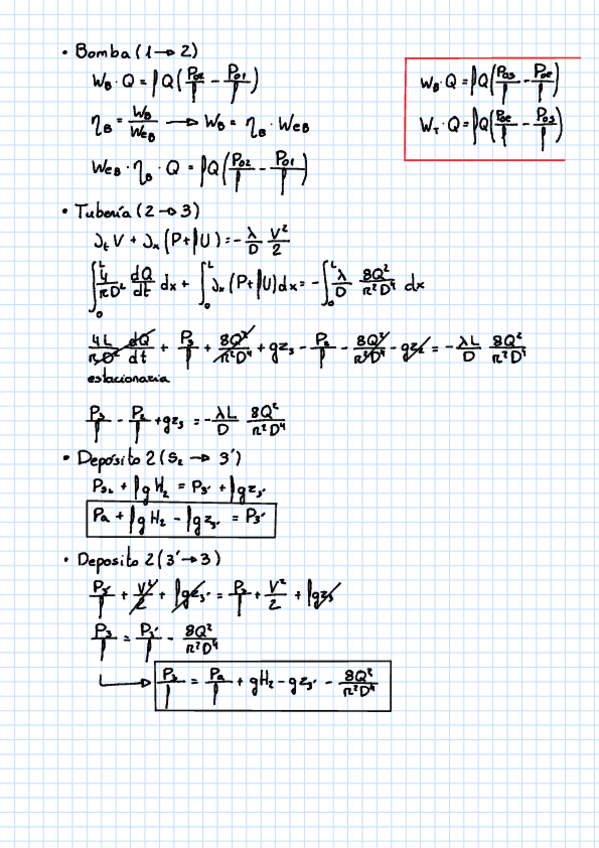 • Bomba (1 → 2)
W_B · Q = ρQ(P_02/ρ - P_01/ρ)
η_B = W_B/W_eB → W_B = η_B · W_eB
W_eB · η_B · Q = ρQ(P_02/ρ - P_01/ρ)
W_B · Q = ρQ(P_0s/ρ - P_0e/ρ)
W_T · Q = ρQ(P_0e/ρ - P_0s/ρ)
• Tubería (2 → 3)
∂_t V + ∂_x (P + ρU) = - λ/D V²/2
∫_0^L 4/(πD²) dQ/dt dx + ∫_0^L ∂_x (P + ρU) dx = - ∫_0^L λ/D 8Q²/(π²D⁴) dx
4L/(πD²) dQ/dt + P_3/ρ + 8Q²/(π²D⁴) + gz_3 - P_2/ρ - 8Q²/(π²D⁴) - gz_2 = - λL/D 8Q²/(π²D⁴)
estacionaria
P_3/ρ - P_2/ρ + gz_3 = - λL/D 8Q²/(π²D⁴)
• Depósito 2 (S_2 → 3')
P_S2 + ρgH_2 = P_3' + ρgz_3'
P_a + ρgH_2 - ρgz_3' = P_3'
• Deposito 2 (3' → 3)
P_3'/ρ + V²/2 + ρgz_3' = P_3/ρ + V²/2 + ρgz_3
P_3/ρ = P_3'/ρ - 8Q²/(π²D⁴)
→ P_3/ρ = P_a/ρ + gH_2 - gz_3' - 8Q²/(π²D⁴)